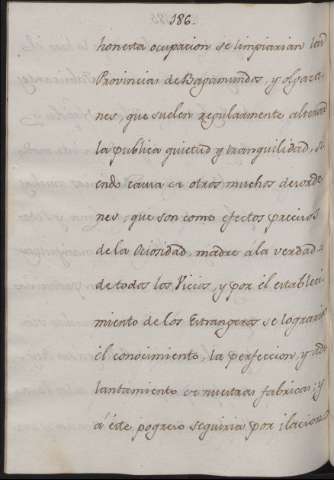 186.
honesta ocupacion se limpiarian las
Provincias de Bagamundos, y olgaza
nes, que suelen regularmente alterar
la publica quietud y tranquilidad, si
endo causa de otros muchos desorde
nes, que son como efectos precisos
de la Ociosidad, madre ála verdad
de todos los Vicios, y por él estableci
miento de los Estrangeros se lograria
él conocimiento, la perfeccion, y ade
lantamiento de nuestras fabricas; y
á éste pogreso seguiria por ilacion